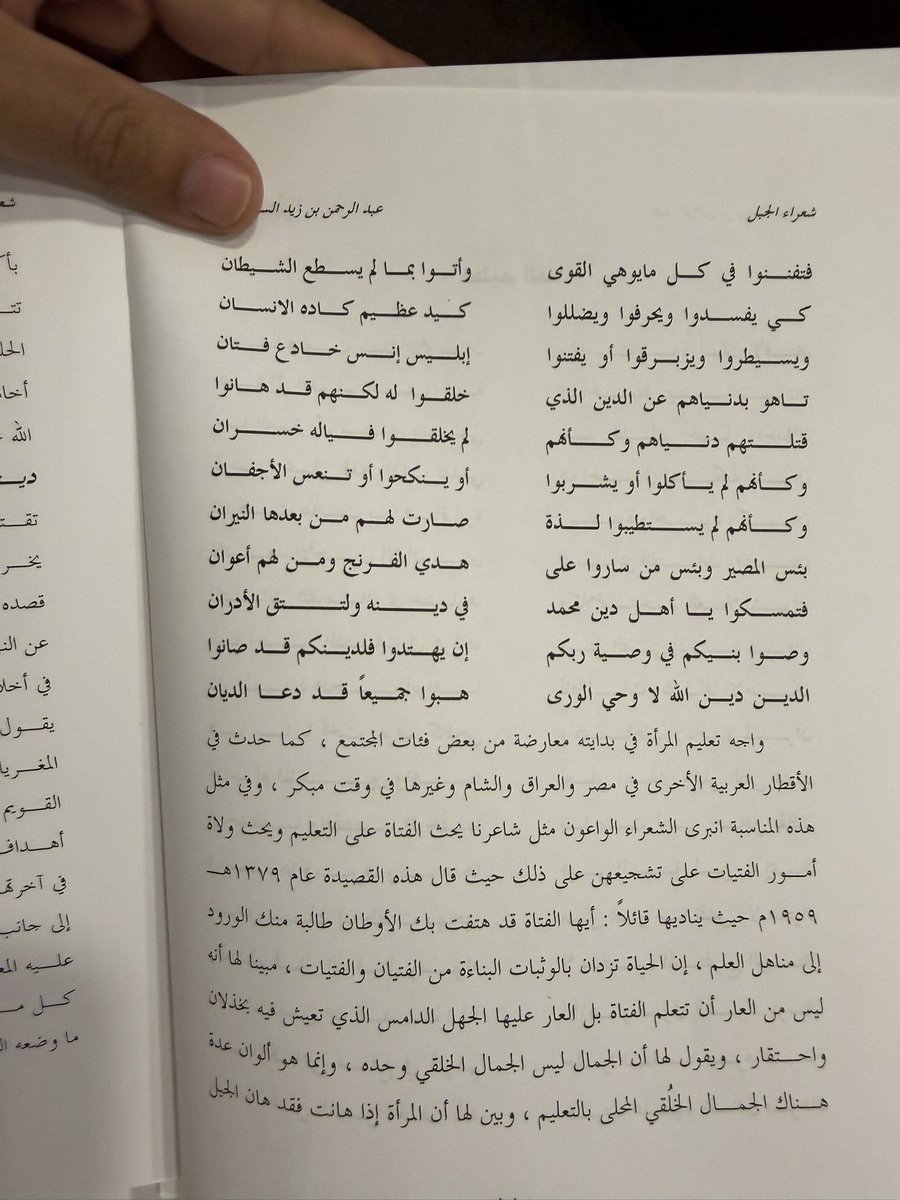 شعراء الجبل عبد الرحمن بن زيد
فتفننوا في كل مايوهي القوى وأتوا بما لم يسطع الشيطان
كي يفسدوا ويحرفوا ويضللوا كيد عظيم كاده الانسان
ويسيطروا ويزبرقوا أو يفتنوا إبليس إنس خادع فتان
تاهو بدنياهم عن الدين الذي خلقوا له لكنهم قد هانوا
قتلتهم دنياهم وكأنهم لم يخلقوا فياله خسران
وكأنهم لم يأكلوا أو يشربوا أو ينكحوا أو تنعس الأجفان
وكأنهم لم يستطيبوا لذة صارت لهم من بعدها النيران
بئس المصير وبئس من ساروا على هدي الفرنج ومن لهم أعوان
فتمسكوا يا أهل دين محمد في دينه ولتتق الأدران
وصوا بنيكم في وصية ربكم إن يهتدوا فلدينكم قد صانوا
الدين دين الله لا وحي الورى هبوا جميعاً قد دعا الديان
واجه تعليم المرأة في بدايته معارضة من بعض فئات المجتمع ، كما حدث في
الأقطار العربية الأخرى في مصر والعراق والشام وغيرها في وقت مبكر ، وفي مثل
هذه المناسبة انبرى الشعراء الواعون مثل شاعرنا يحث الفتاة على التعليم ويحث ولاة
أمور الفتيات على تشجيعهن على ذلك حيث قال هذه القصيدة عام ١٣٧٩هـ
١٩٥٩م حيث يناديها قائلاً : أيها الفتاة قد هتفت بك الأوطان طالبة منك الورود
إلى مناهل العلم ، إن الحياة تزدان بالوثبات البناءة من الفتيان والفتيات ، مبينا لها أنه
ليس من العار أن تتعلم الفتاة بل العار عليها الجهل الدامس الذي تعيش فيه بخذلان
واحتقار ، ويقول لها أن الجمال ليس الجمال الخلقي وحده ، وإنما هو ألوان عدة
هناك الجمال الخُلقي المحلى بالتعليم ، وبين لها أن المرأة إذا هانت فقد هان الجيل